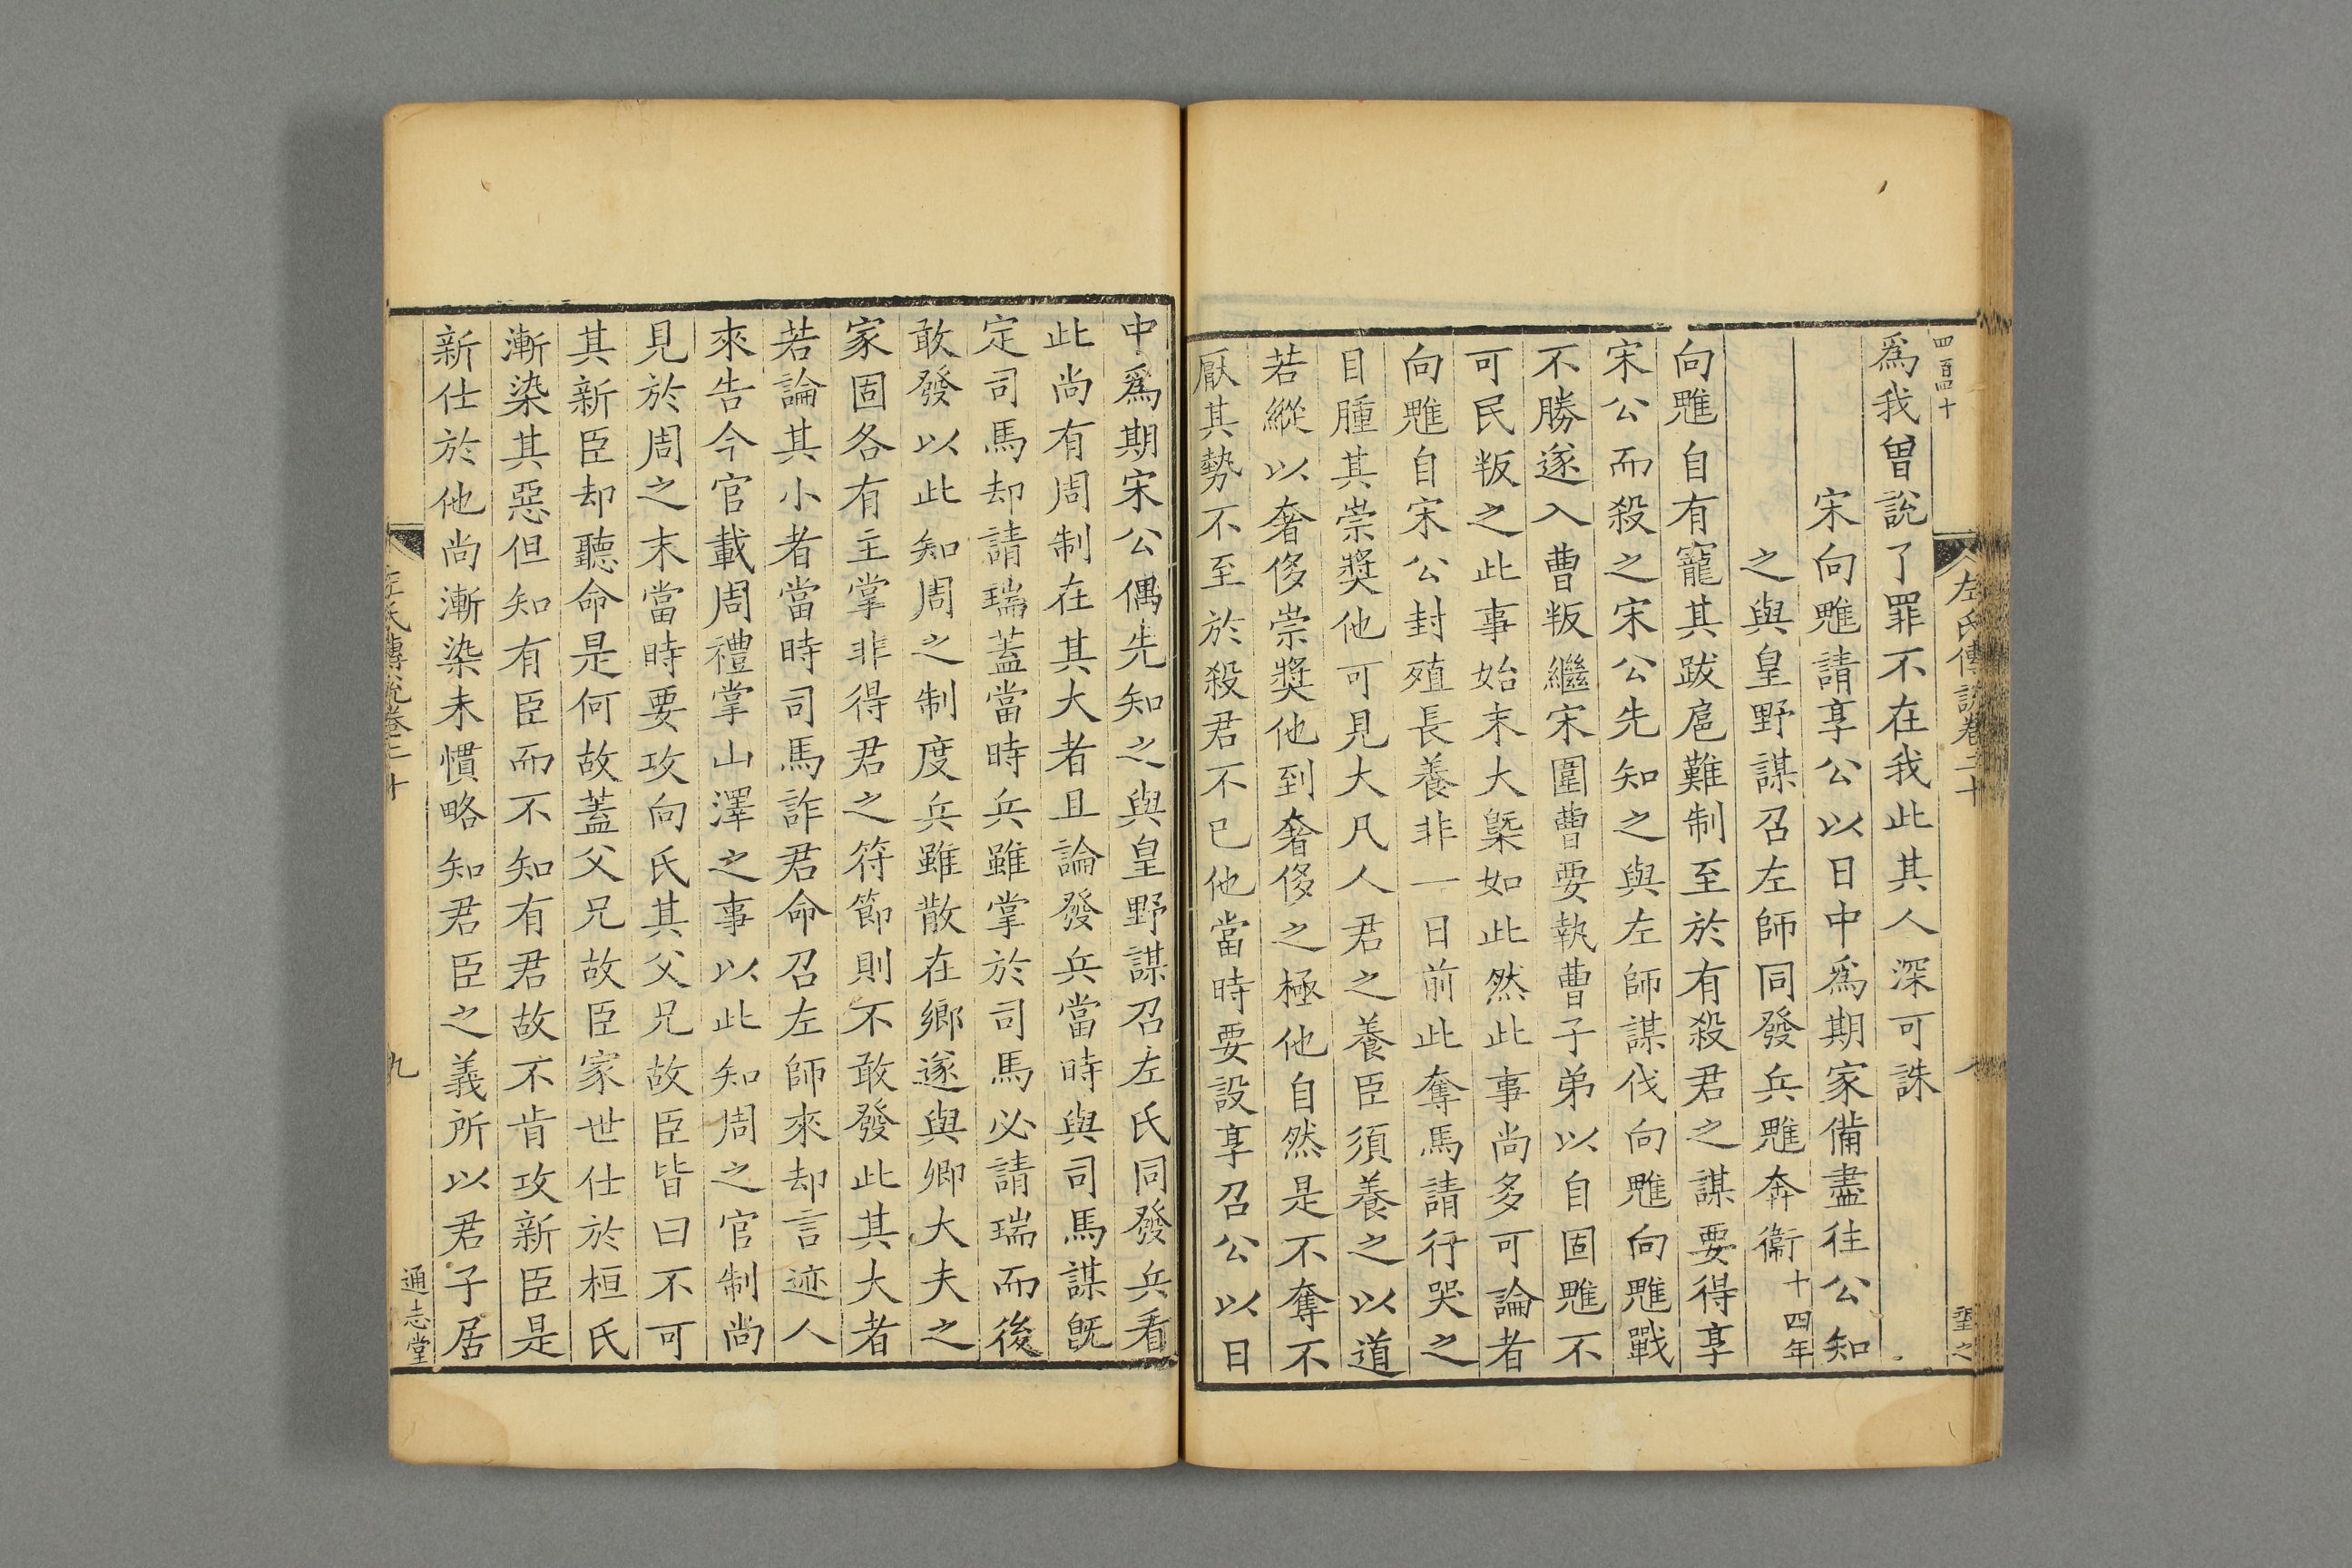 四百四十
左氏傳說卷二十
八
爲我曾說了罪不在我此其人深可誅
宋向魋請享公以日中爲期家備盡往公知
之與皇野謀召左師同發兵魋奔衞十四年
向魋自有寵其跋扈難制至於有殺君之謀要得享
宋公而殺之宋公先知之與左師謀伐向魋向魋戰
不勝遂入曹叛繼宋圍曹要執曹子弟以自固魋不
可民叛之此事始末大槩如此然此事尚多可論者
向魋自宋公封殖長養非一日前此奪馬請行哭之
目腫其崇奬他可見大凡人君之養臣須養之以道
若縱以奢侈崇奬他到奢侈之極他自然是不奪不
厭其勢不至於殺君不已他當時要設享召公以日
中爲期宋公偶先知之與皇野謀召左氏同發兵看
此尚有周制在其大者且論發兵當時與司馬謀旣
定司馬却請瑞蓋當時兵雖掌於司馬必請瑞而後
敢發以此知周之制度兵雖散在鄉遂與卿大夫之
家固各有主掌非得君之符節則不敢發此其大者
若論其小者當時司馬詐君命召左師來却言迹人
來告今官載周禮掌山澤之事以此知周之官制尚
見於周之末當時要攻向氏其父兄故臣皆曰不可
其新臣却聽命是何故蓋父兄故臣家世仕於桓氏
漸染其惡但知有臣而不知有君故不肯攻新臣是
新仕於他尚漸染未慣略知君臣之義所以君子居
左氏傳說卷二十
九
通志堂